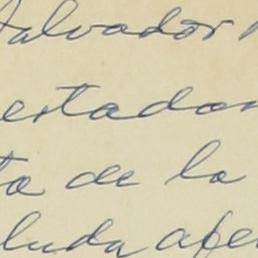 Salvador
estados
ta de la
luda afe